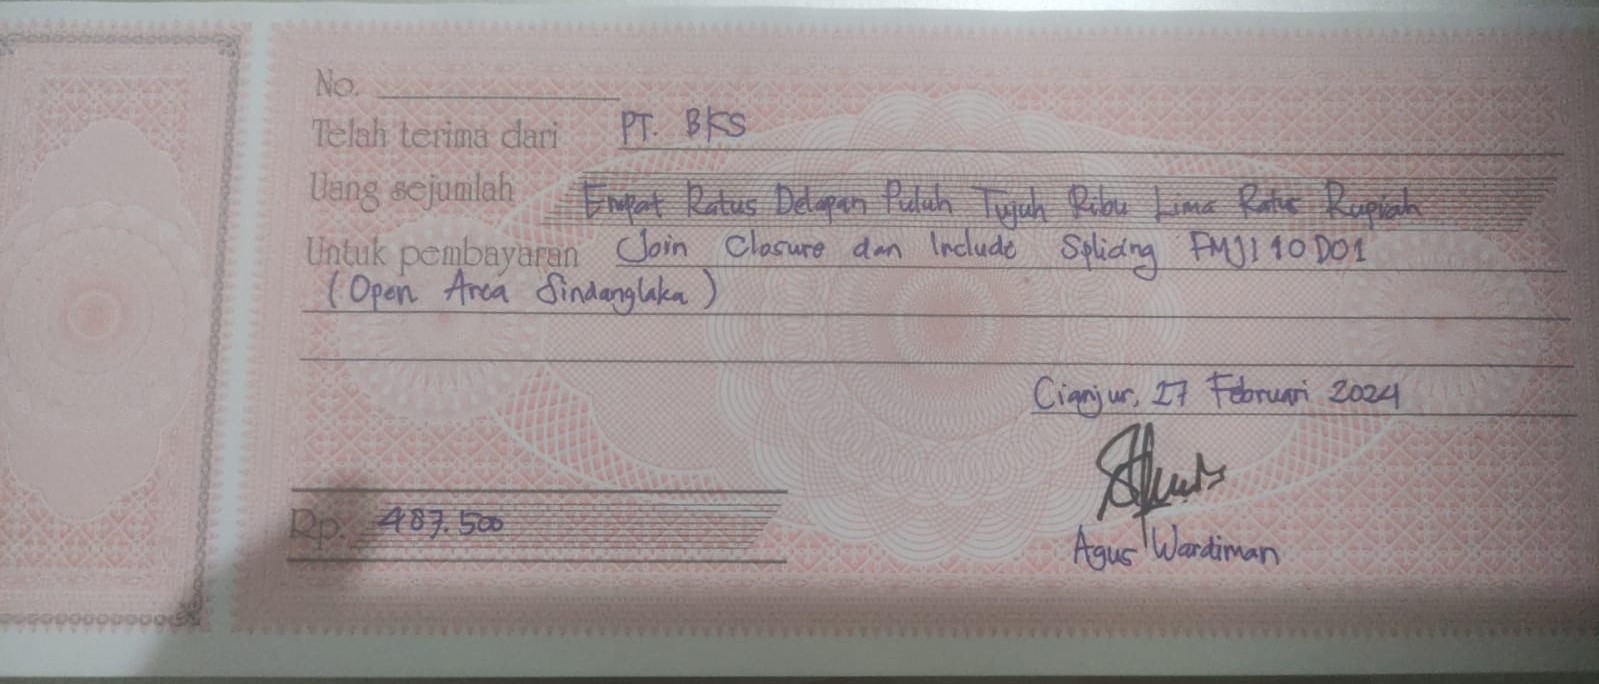 No.
Telah terima dari PT. BKS
Uang sejumlah Empat Ratus Delapan Puluh Tujuh Ribu Lima Ratus Rupiah
Untuk pembayaran Join Closure dan Include Splicing FMJ1 10 D01
(Open Area Sindanglaka)
Cianjur, 27 Februari 2024
Rp. 487.500
Agus Wardiman